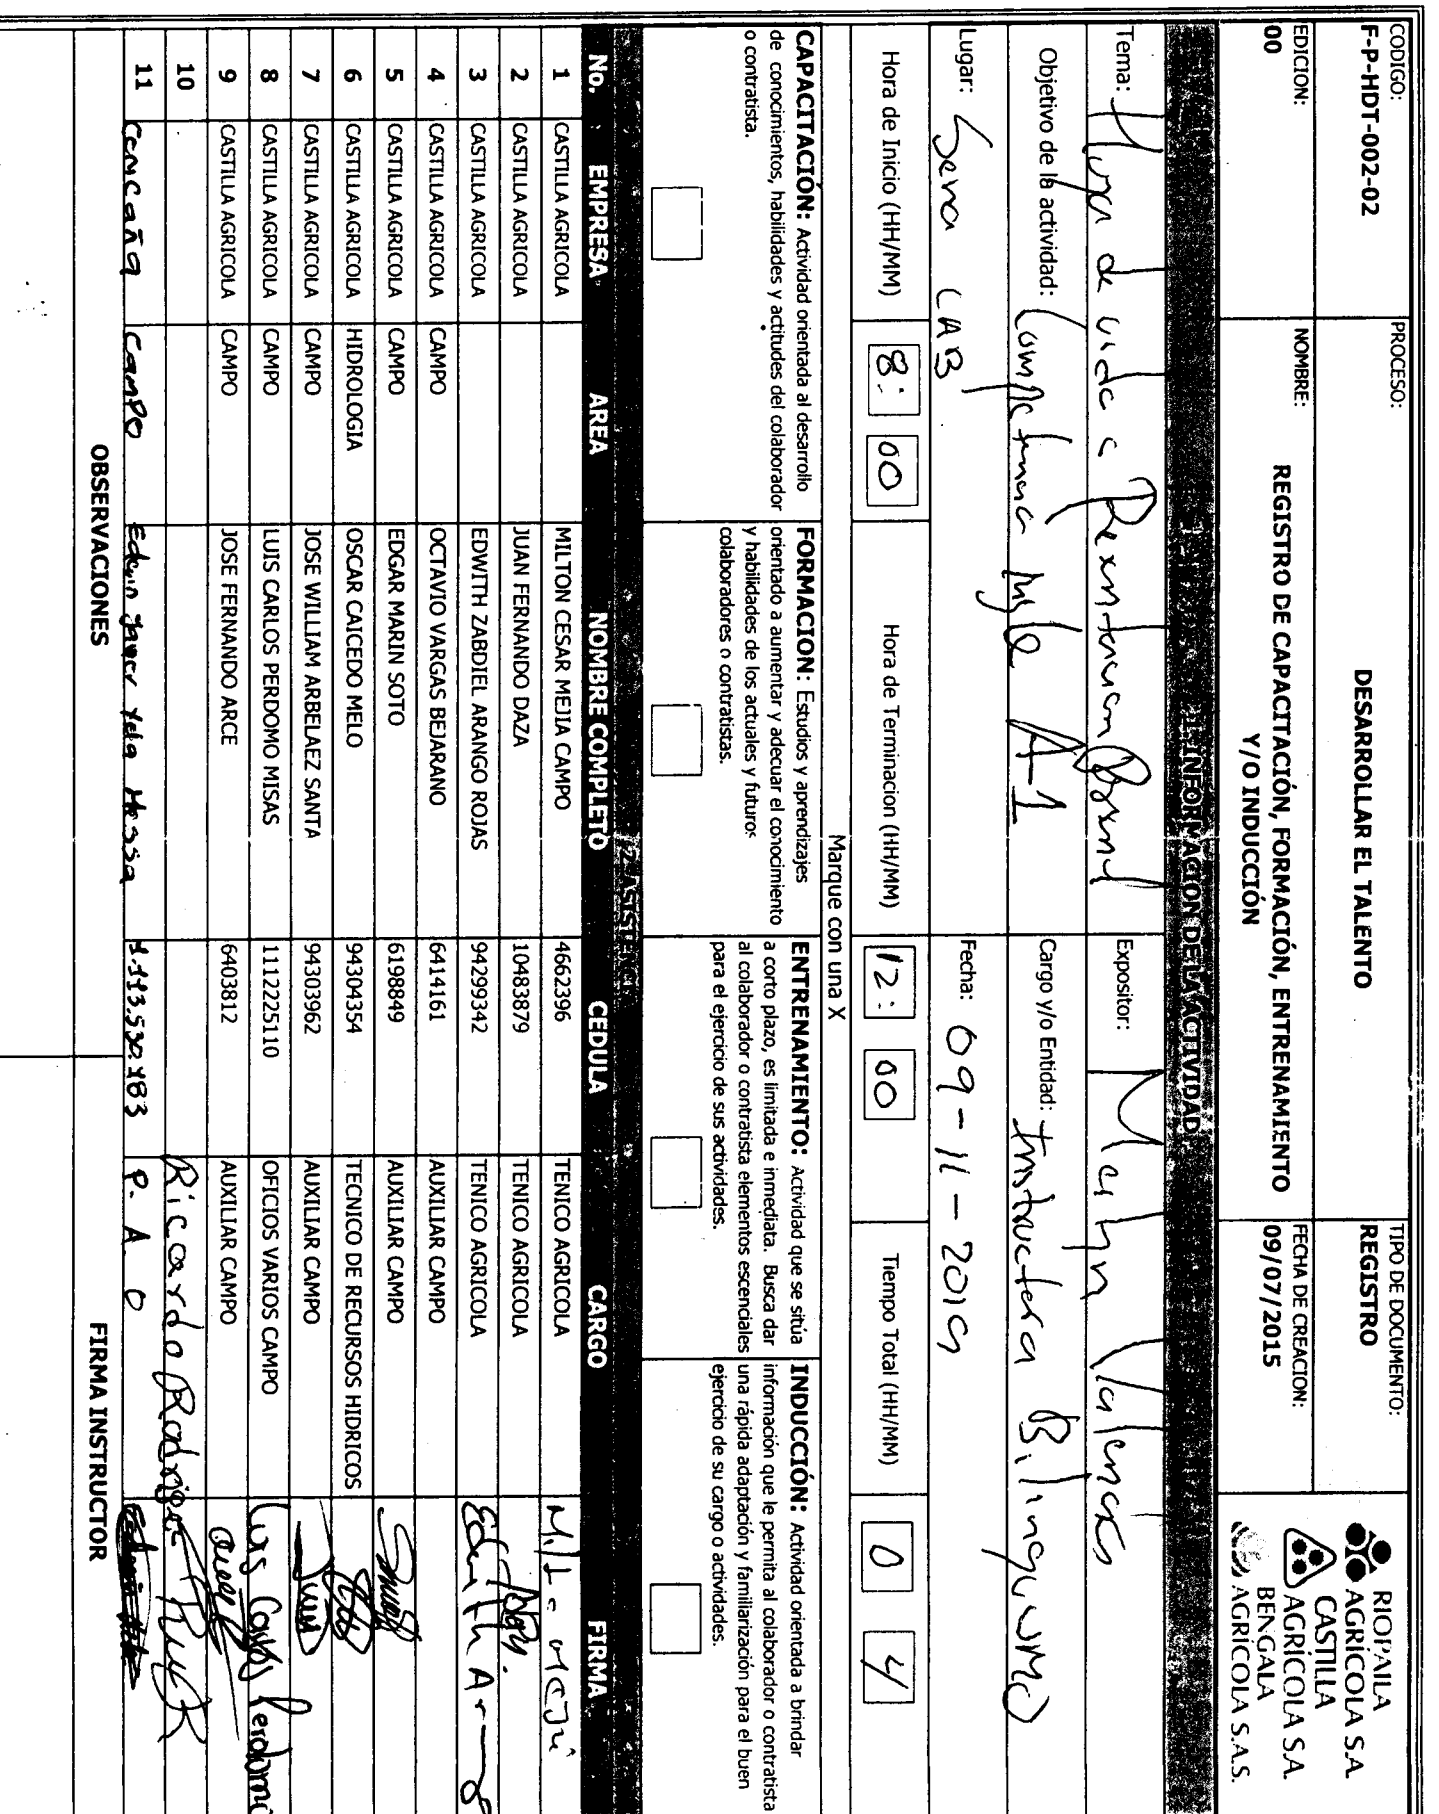 CODIGO:
F-P-HDT-002-02
PROCESO:
DESARROLLAR EL TALENTO
TIPO DE DOCUMENTO:
REGISTRO
EDICION:
00
NOMBRE:
REGISTRO DE CAPACITACIÓN, FORMACIÓN, ENTRENAMIENTO
Y/O INDUCCIÓN
FECHA DE CREACION:
09/07/2015
RIOPAILA
AGRÍCOLA S.A.
CASTILLA
AGRÍCOLA S.A.
BENGALA
AGRÍCOLA S.A.S.
1. INFORMACION DE LA ACTIVIDAD
Tema: Hoja de vida
Expositor: Valencia
Objetivo de la actividad: A-1
Cargo y/o Entidad: Instructora Bilinguismo
Lugar: Sena CAB
Fecha: 09-11-2019
Hora de Inicio (HH/MM) 8: 00
Hora de Terminacion (HH/MM) 12: 00
Tiempo Total (HH/MM) 0 4
Marque con una X
CAPACITACIÓN: Actividad orientada al desarrollo
de conocimientos, habilidades y actitudes del colaborador
o contratista.
FORMACION: Estudios y aprendizajes
orientado a aumentar y adecuar el conocimiento
y habilidades de los actuales y futuros
colaboradores o contratistas.
ENTRENAMIENTO: Actividad que se sitúa
a corto plazo, es limitada e inmediata. Busca dar
al colaborador o contratista elementos escenciales
para el ejercicio de sus actividades.
INDUCCIÓN: Actividad orientada a brindar
información que le permita al colaborador o contratista
una rápida adaptación y familiarización para el buen
ejercicio de su cargo o actividades.
2. ASISTENCIA
No. EMPRESA AREA NOMBRE COMPLETO CEDULA CARGO FIRMA
1 CASTILLA AGRICOLA MILTON CESAR MEJIA CAMPO 4662396 TENICO AGRICOLA
2 CASTILLA AGRICOLA JUAN FERNANDO DAZA 10483879 TENICO AGRICOLA
3 CASTILLA AGRICOLA EDWITH ZABDIEL ARANGO ROJAS 94299342 TENICO AGRICOLA
4 CASTILLA AGRICOLA CAMPO OCTAVIO VARGAS BEJARANO 6414161 AUXILIAR CAMPO
5 CASTILLA AGRICOLA CAMPO EDGAR MARIN SOTO 6198849 AUXILIAR CAMPO
6 CASTILLA AGRICOLA HIDROLOGIA OSCAR CAICEDO MELO 94304354 TECNICO DE RECURSOS HIDRICOS
7 CASTILLA AGRICOLA CAMPO JOSE WILLIAM ARBELAEZ SANTA 94303962 AUXILIAR CAMPO
8 CASTILLA AGRICOLA CAMPO LUIS CARLOS PERDOMO MISAS 1112225110 OFICIOS VARIOS CAMPO Luis Carlos Perdomo
9 CASTILLA AGRICOLA CAMPO JOSE FERNANDO ARCE 6403812 AUXILIAR CAMPO
10 Ricardo Rodriguez
11 Cencaña Campo Edwin Yela 1.113.530.183 P. A. O
OBSERVACIONES
FIRMA INSTRUCTOR